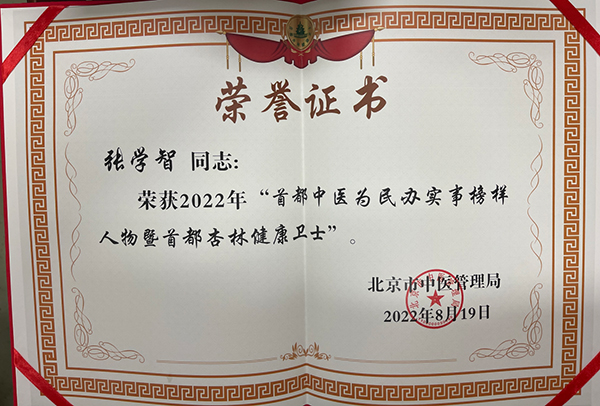 荣誉证书
张学智 同志:
荣获2022年“首都中医为民办实事榜样
人物暨首都杏林健康卫士”。
北京市中医管理局
2022年8月19日